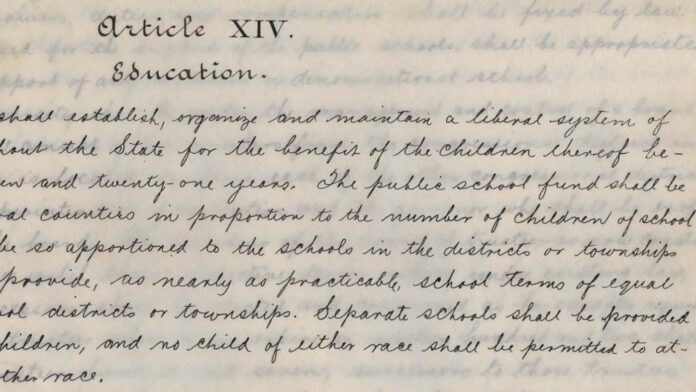 Article XIV.
Education.
shall establish, organize and maintain a liberal system of
hout the State for the benefit of the children thereof be-
en and twenty-one years. The public school fund shall be
al counties in proportion to the number of children of school
be so apportioned to the schools in the districts or townships
provide, as nearly as practicable, school terms of equal
ol districts or townships. Separate schools shall be provided
hildren, and no child of either race shall be permitted to at-
ther race.